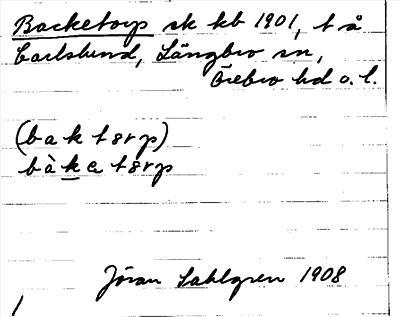 Backetorp sk kb 1901, t å
Carlslund, Längbro sn,
Örebro hd o. l.
(baktårp)
bàketårp
Jöran Sahlgren 1908